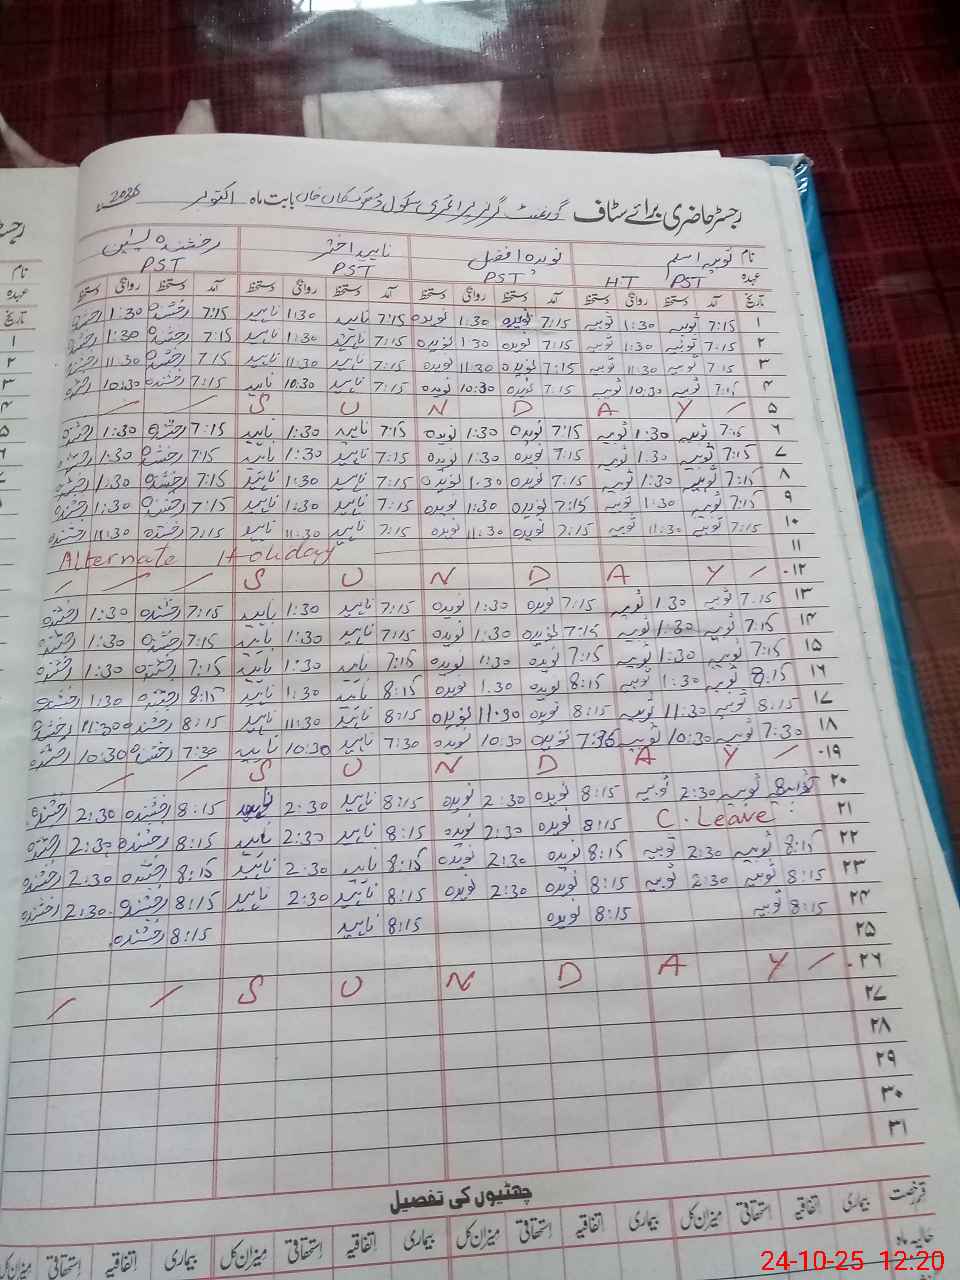 2025
رجسٹر حاضری برائے سٹاف گورنمنٹ گرلز پرائمری سکول بابت ماہ اکتوبر
نام ثوبیہ اسلم نویدہ افضل ناہید اختر رخشندہ
عہدہ PST HT PST PST PST
تاریخ آمد دستخط روانگی دستخط آمد دستخط روانگی دستخط آمد دستخط روانگی دستخط آمد دستخط روانگی دستخط
۱ 7:15 ثوبیہ 1:30 ثوبیہ 7:15 نویدہ 1:30 نویدہ 7:15 ناہید 1:30 ناہید 7:15 رخشندہ 1:30 رخشندہ
۲ 7:15 ثوبیہ 1:30 ثوبیہ 7:15 نویدہ 1:30 نویدہ 7:15 ناہید 1:30 ناہید 7:15 رخشندہ 1:30 رخشندہ
۳ 7:15 ثوبیہ 11:30 ثوبیہ 7:15 نویدہ 11:30 نویدہ 7:15 ناہید 11:30 ناہید 7:15 رخشندہ 11:30 رخشندہ
۴ 7:15 ثوبیہ 10:30 ثوبیہ 7:15 نویدہ 10:30 نویدہ 7:15 ناہید 10:30 ناہید 7:15 رخشندہ 10:30 رخشندہ
۵ S U N D A Y
۶ 7:15 ثوبیہ 1:30 ثوبیہ 7:15 نویدہ 1:30 نویدہ 7:15 ناہید 1:30 ناہید 7:15 رخشندہ 1:30 رخشندہ
۷ 7:15 ثوبیہ 1:30 ثوبیہ 7:15 نویدہ 1:30 نویدہ 7:15 ناہید 1:30 ناہید 7:15 رخشندہ 1:30 رخشندہ
۸ 7:15 ثوبیہ 1:30 ثوبیہ 7:15 نویدہ 1:30 نویدہ 7:15 ناہید 1:30 ناہید 7:15 رخشندہ 1:30 رخشندہ
۹ 7:15 ثوبیہ 1:30 ثوبیہ 7:15 نویدہ 1:30 نویدہ 7:15 ناہید 1:30 ناہید 7:15 رخشندہ 1:30 رخشندہ
۱۰ 7:15 ثوبیہ 11:30 ثوبیہ 7:15 نویدہ 11:30 نویدہ 7:15 ناہید 11:30 ناہید 7:15 رخشندہ 11:30 رخشندہ
۱۱ Alternate Holiday
۱۲ S U N D A Y
۱۳ 7:15 ثوبیہ 1:30 ثوبیہ 7:15 نویدہ 1:30 نویدہ 7:15 ناہید 1:30 ناہید 7:15 رخشندہ 1:30 رخشندہ
۱۴ 7:15 ثوبیہ 1:30 ثوبیہ 7:15 نویدہ 1:30 نویدہ 7:15 ناہید 1:30 ناہید 7:15 رخشندہ 1:30 رخشندہ
۱۵ 7:15 ثوبیہ 1:30 ثوبیہ 7:15 نویدہ 1:30 نویدہ 7:15 ناہید 1:30 ناہید 7:15 رخشندہ 1:30 رخشندہ
۱۶ 8:15 ثوبیہ 1:30 ثوبیہ 8:15 نویدہ 1:30 نویدہ 8:15 ناہید 1:30 ناہید 8:15 رخشندہ 1:30 رخشندہ
۱۷ 8:15 ثوبیہ 11:30 ثوبیہ 8:15 نویدہ 11:30 نویدہ 8:15 ناہید 11:30 ناہید 8:15 رخشندہ 11:30 رخشندہ
۱۸ 7:30 ثوبیہ 10:30 ثوبیہ 7:30 نویدہ 10:30 نویدہ 7:30 ناہید 10:30 ناہید 7:30 رخشندہ 10:30 رخشندہ
۱۹ S U N D A Y
۲۰ 8:15 ثوبیہ 2:30 ثوبیہ 8:15 نویدہ 2:30 نویدہ 8:15 ناہید 2:30 ناہید 8:15 رخشندہ 2:30 رخشندہ
۲۱ C. Leave 8:15 نویدہ 2:30 نویدہ 8:15 ناہید 2:30 ناہید 8:15 رخشندہ 2:30 رخشندہ
۲۲ 8:15 ثوبیہ 2:30 ثوبیہ 8:15 نویدہ 2:30 نویدہ 8:15 ناہید 2:30 ناہید 8:15 رخشندہ 2:30 رخشندہ
۲۳ 8:15 ثوبیہ 2:30 ثوبیہ 8:15 نویدہ 2:30 نویدہ 8:15 ناہید 2:30 ناہید 8:15 رخشندہ 2:30 رخشندہ
۲۴ 8:15 ثوبیہ 8:15 نویدہ 8:15 ناہید 8:15 رخشندہ
۲۵
۲۶ S U N D A Y
۲۷
۲۸
۲۹
۳۰
۳۱
چھٹیوں کی تفصیل
قسم رخصت بیماری اتفاقیہ استحقاقی میزان کل بیماری اتفاقیہ استحقاقی میزان کل بیماری اتفاقیہ استحقاقی میزان کل بیماری اتفاقیہ استحقاقی میزان کل
حالیہ ماہ
24-10-25 12:20